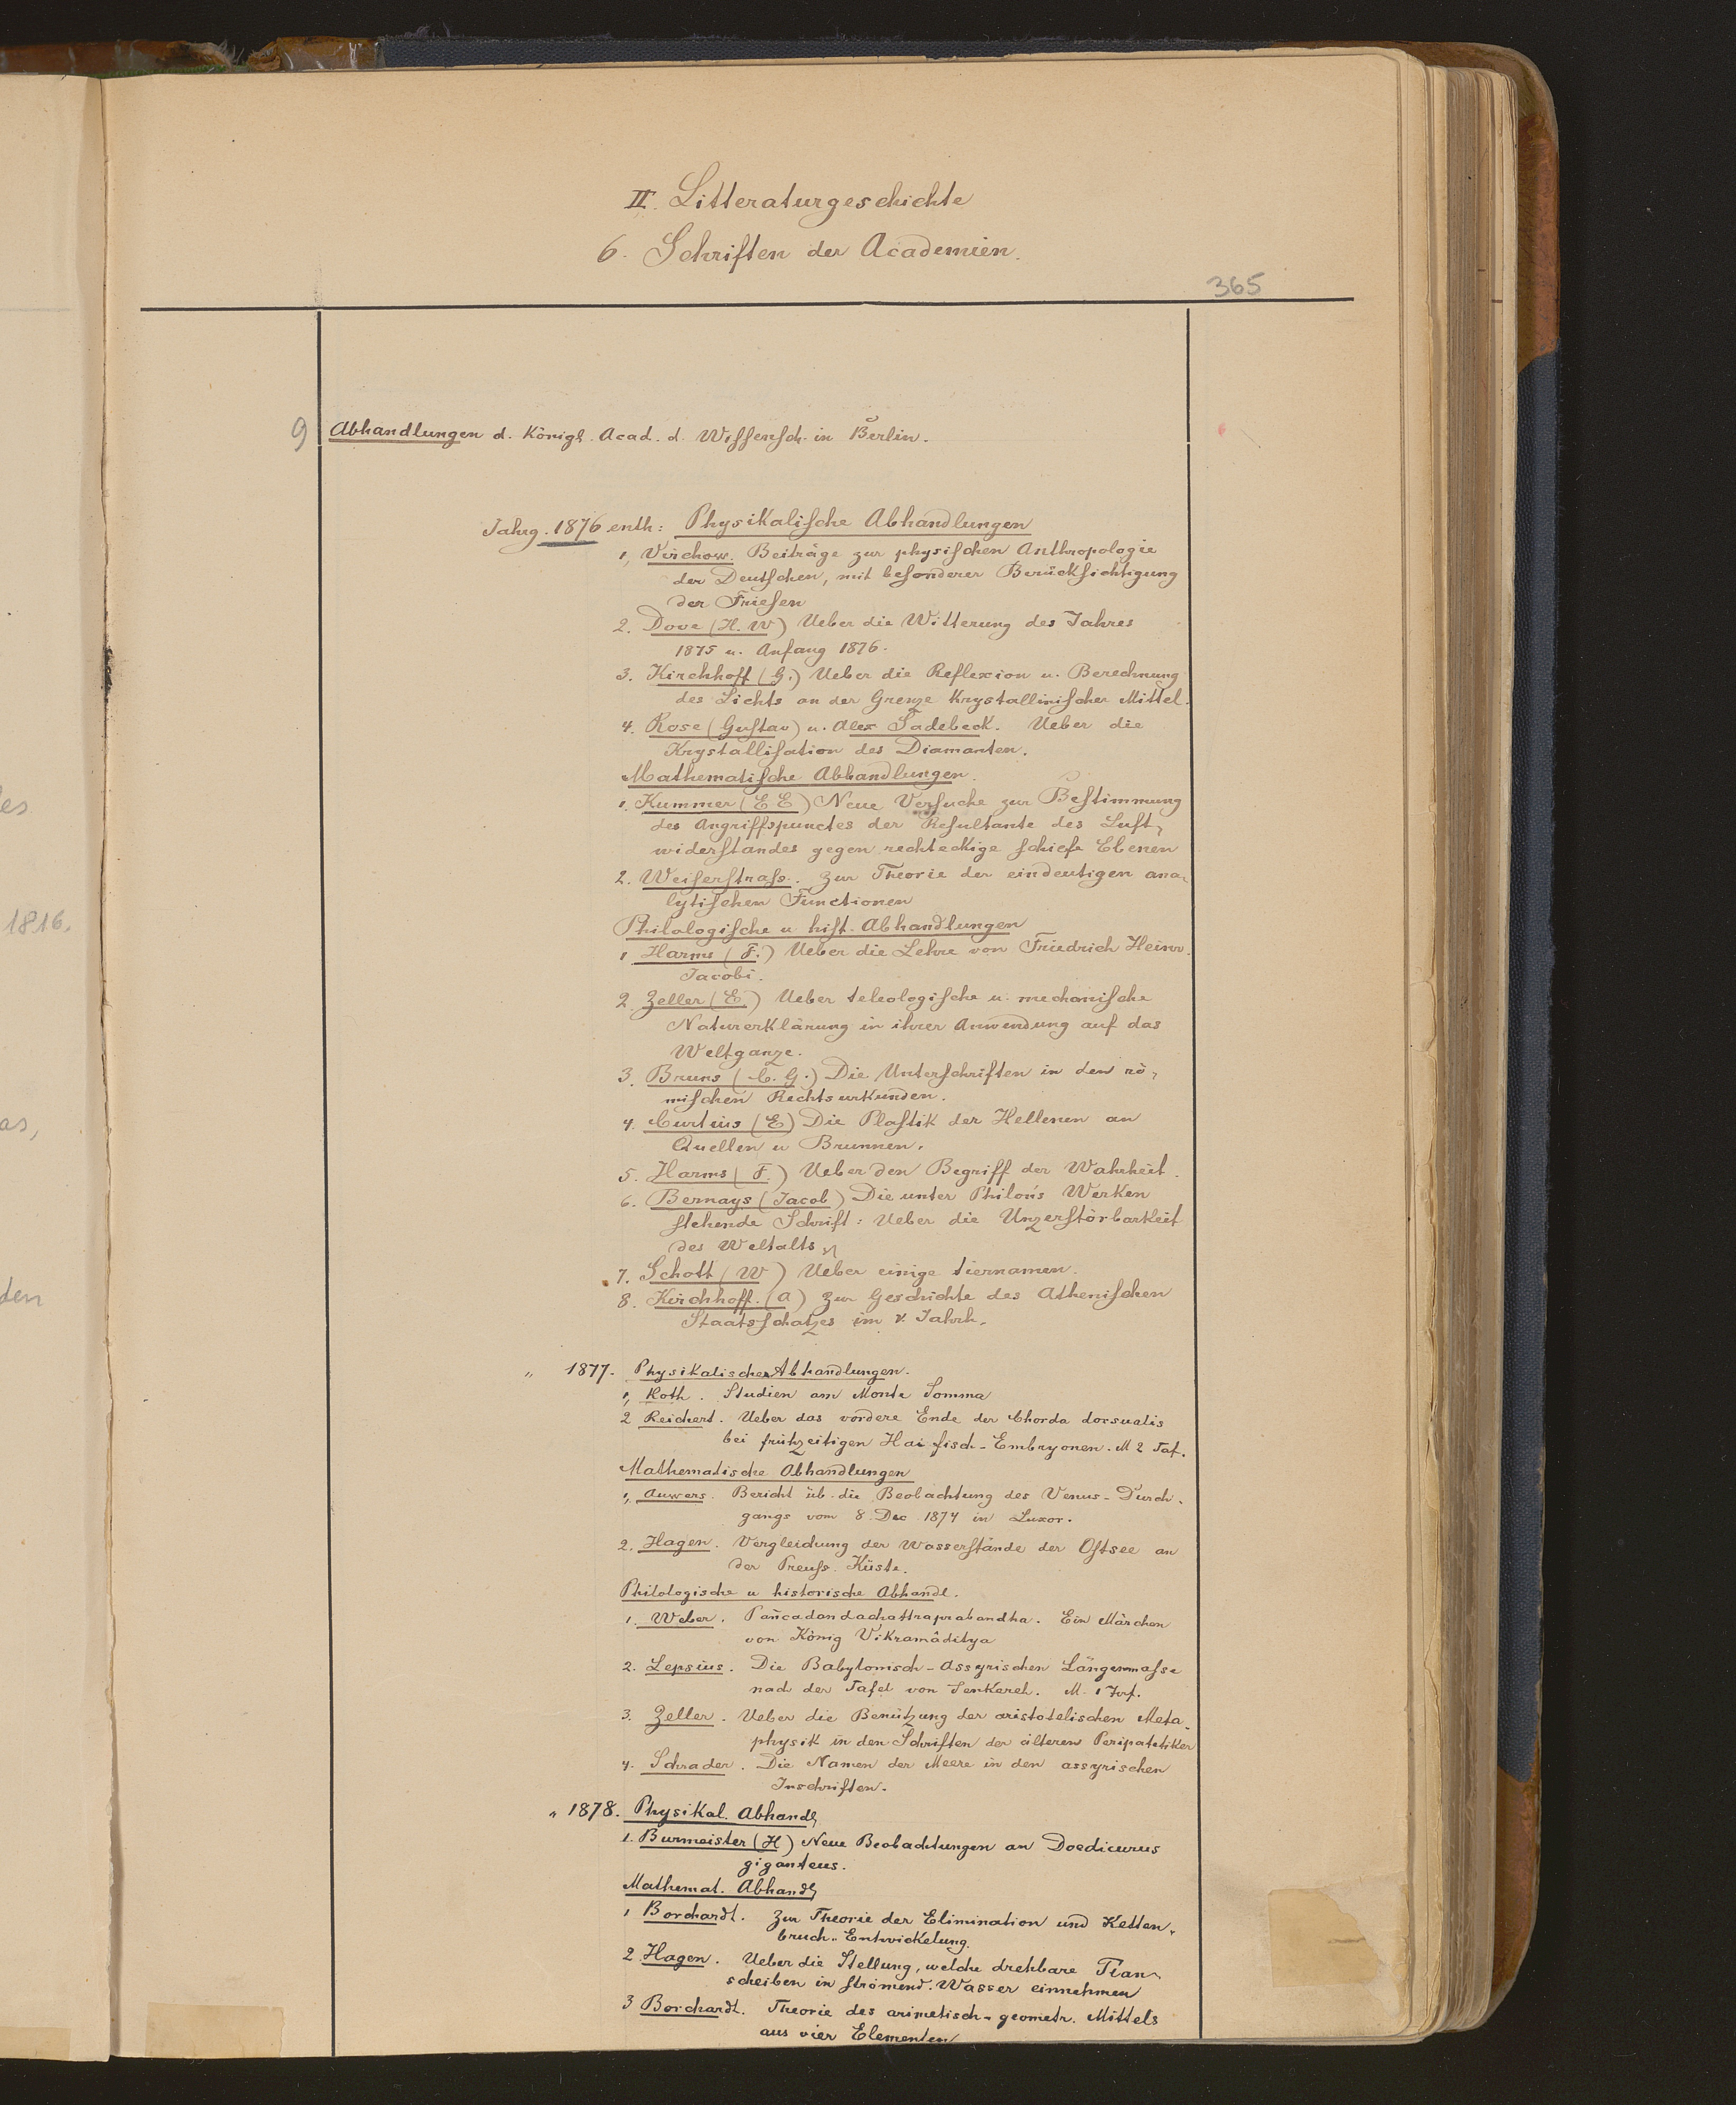 II. Litteraturgeschichte
6. Schriften der Academien.
365
9 Abhandlungen d. Königl. Acad. d. Wissensch. in Berlin.
Jahrg. 1876 enth: Physikalische Abhandlungen
1, Virchow. Beiträge zur physischen Anthropologie
der Deutschen, mit besonderer Berücksichtigung
der Friesen
2. Dove (H. W) Ueber die Witterung des Jahres
1875 u. Anfang 1876.
3. Kirchhoff (G.) Ueber die Reflexion u. Berechnung
des Lichts an der Grenze Krystallinischer Mittel.
4. Rose (Gustav) u. Alex Sadebeck. Ueber die
Krystallisation des Diamanten.
Mathematische Abhandlungen.
1. Kummer (E E) Neue Versuche zur Bestimmung
des Angriffspunctes der Resultante des Luft-
widerstandes gegen rechteckige schiefe Ebenen
2. Weiserstrass. Zur Theorie der eindeutigen ana-
lytischen Functionen
Philologische u. hist. Abhandlungen
1 Harms (F.) Ueber die Lehre von Friedrich Heinr.
Jacobi.
2. Zeller (E) Ueber teleologische u. mechanische
Naturerklärung in ihrer Anwendung auf das
Weltganze.
3. Bruns (C. G.) Die Unterschriften in den rö-
mischen Rechtsurkunden.
4. Curtius (E) Die Plastik der Hellenen an
Quellen u Brunnen.
5. Harms (F.) Ueber den Begriff der Wahrheit.
6. Bernays (Jacob) Die unter Philon's Werken
stehende Schrift: Ueber die Unzerstörbarkeit
des Weltalls
7. Schott (W) Ueber einige tiernamen.
8. Kirchhoff. (A) Zur Geschichte des Athenischen
Staatsschatzes im V. Jahrh.
" 1877. Physikalische Abhandlungen.
1, Roth. Studien am Monte Somma
2 Reichert. Ueber das vordere Ende der Chorda dorsualis
bei frühzeitigen Haifisch-Embryonen. M 2 Taf.
Mathematische Abhandlungen
1, Auwers. Bericht üb. die Beobachtung des Venus-Durch-
gangs vom 8. Dec. 1874 in Luxor.
2. Hagen. Vergleichung der Wasserstände der Ostsee an
der Preuss. Küste.
Philologische u historische Abhandl.
1. Weber. Pañcadandachattraprabandha. Ein Märchen
von König Vikramâditya
2. Lepsius. Die Babylonisch-Assyrischen Längenmasse
nach der Tafel von Senkereh. M. 1 Taf.
3. Zeller. Ueber die Benützung der aristotelischen Meta-
physik in den Schriften der älteren Peripatetiker
4. Schrader. Die Namen der Meere in den assyrischen
Inschriften.
" 1878. Physikal. Abhandl
1. Burmeister (H) Neue Beobachtungen an Doedicurus
giganteus.
Mathemat. Abhandl
1 Borchardt. Zur Theorie der Elimination und Ketten-
bruch-Entwickelung.
2 Hagen. Ueber die Stellung, welche drehbare Plan-
scheiben in strömend. Wasser einnehmen
3 Borchardt. Theorie des arimetisch-geometr. Mittels
aus vier Elementen